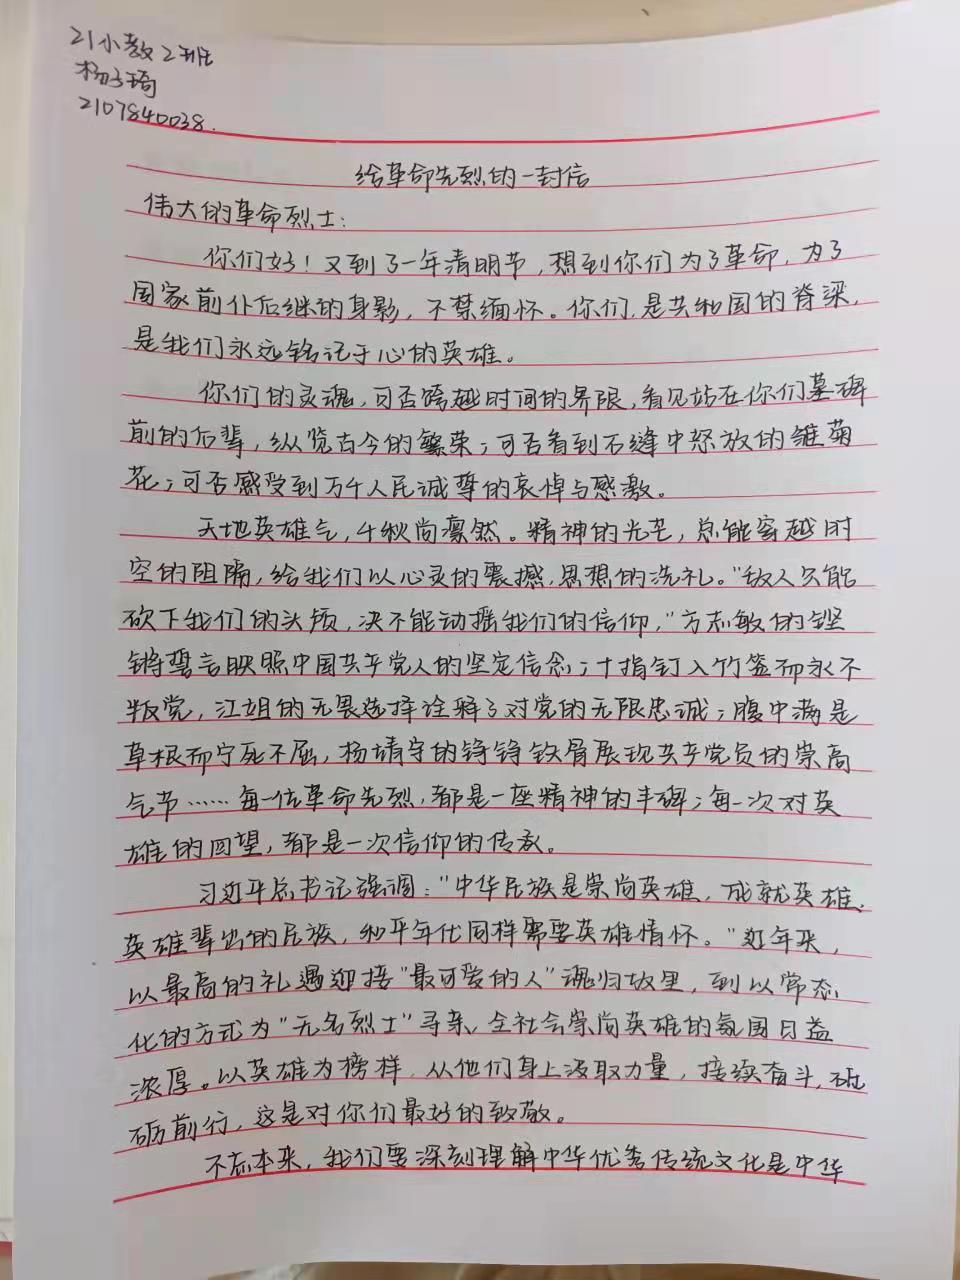 21小教2班
杨子琦
2107840038.
给革命先烈的一封信
伟大的革命烈士：
你们好！又到了一年清明节，想到你们为了革命，为了
国家前仆后继的身影，不禁缅怀。你们，是共和国的脊梁，
是我们永远铭记于心的英雄。
你们的灵魂，可否跨越时间的界限，看见站在你们墓碑
前的后辈，纵览古今的繁荣；可否看到石缝中怒放的雏菊
花；可否感受到万千人民诚挚的哀悼与感激。
天地英雄气，千秋尚凛然。精神的光芒，总能穿越时
空的阻隔，给我们以心灵的震撼，思想的洗礼。"敌人只能
砍下我们的头颅，决不能动摇我们的信仰，"方志敏的铿
锵誓言映照中国共产党人的坚定信念；十指钉入竹签而永不
叛党，江姐的无畏选择诠释了对党的无限忠诚；腹中满是
草根而宁死不屈，杨靖宇的铮铮铁骨展现共产党员的崇高
气节……每一位革命先烈，都是一座精神的丰碑；每一次对英
雄的回望，都是一次信仰的传承。
习近平总书记强调："中华民族是崇尚英雄，成就英雄、
英雄辈出的民族，和平年代同样需要英雄情怀。"近年来，
以最高的礼遇迎接"最可爱的人"魂归故里，到以常态
化的方式为"无名烈士"寻亲、全社会崇尚英雄的氛围日益
浓厚。以英雄为榜样，从他们身上汲取力量，接续奋斗，砥
砺前行，这是对你们最好的致敬。
不忘本来，我们要深刻理解中华优秀传统文化是中华